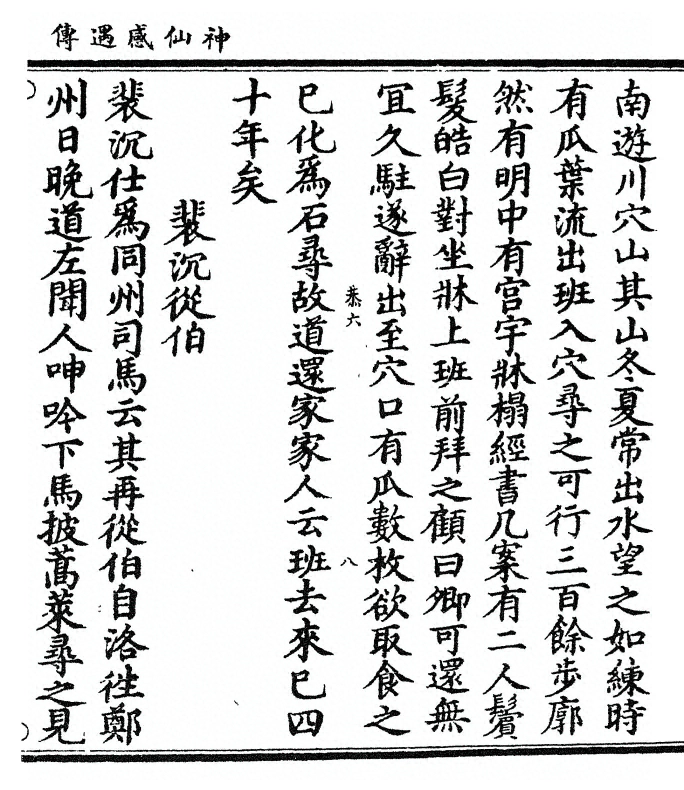 神仙感遇傳
南遊川穴山其山冬夏常出水望之如練時
有瓜葉流出班入穴尋之可行三百餘步廓
然有明中有宮宇牀榻經書几案有二人鬢
髮皓白對坐牀上班前拜之顧曰卿可還無
宜久駐遂辭出至穴口有瓜數枚欲取食之
恭六
八
已化爲石尋故道還家家人云班去來已四
十年矣
裴沉從伯
裴沉仕爲同州司馬云其再從伯自洛徃鄭
州日晚道左聞人呻吟下馬披蒿萊尋之見